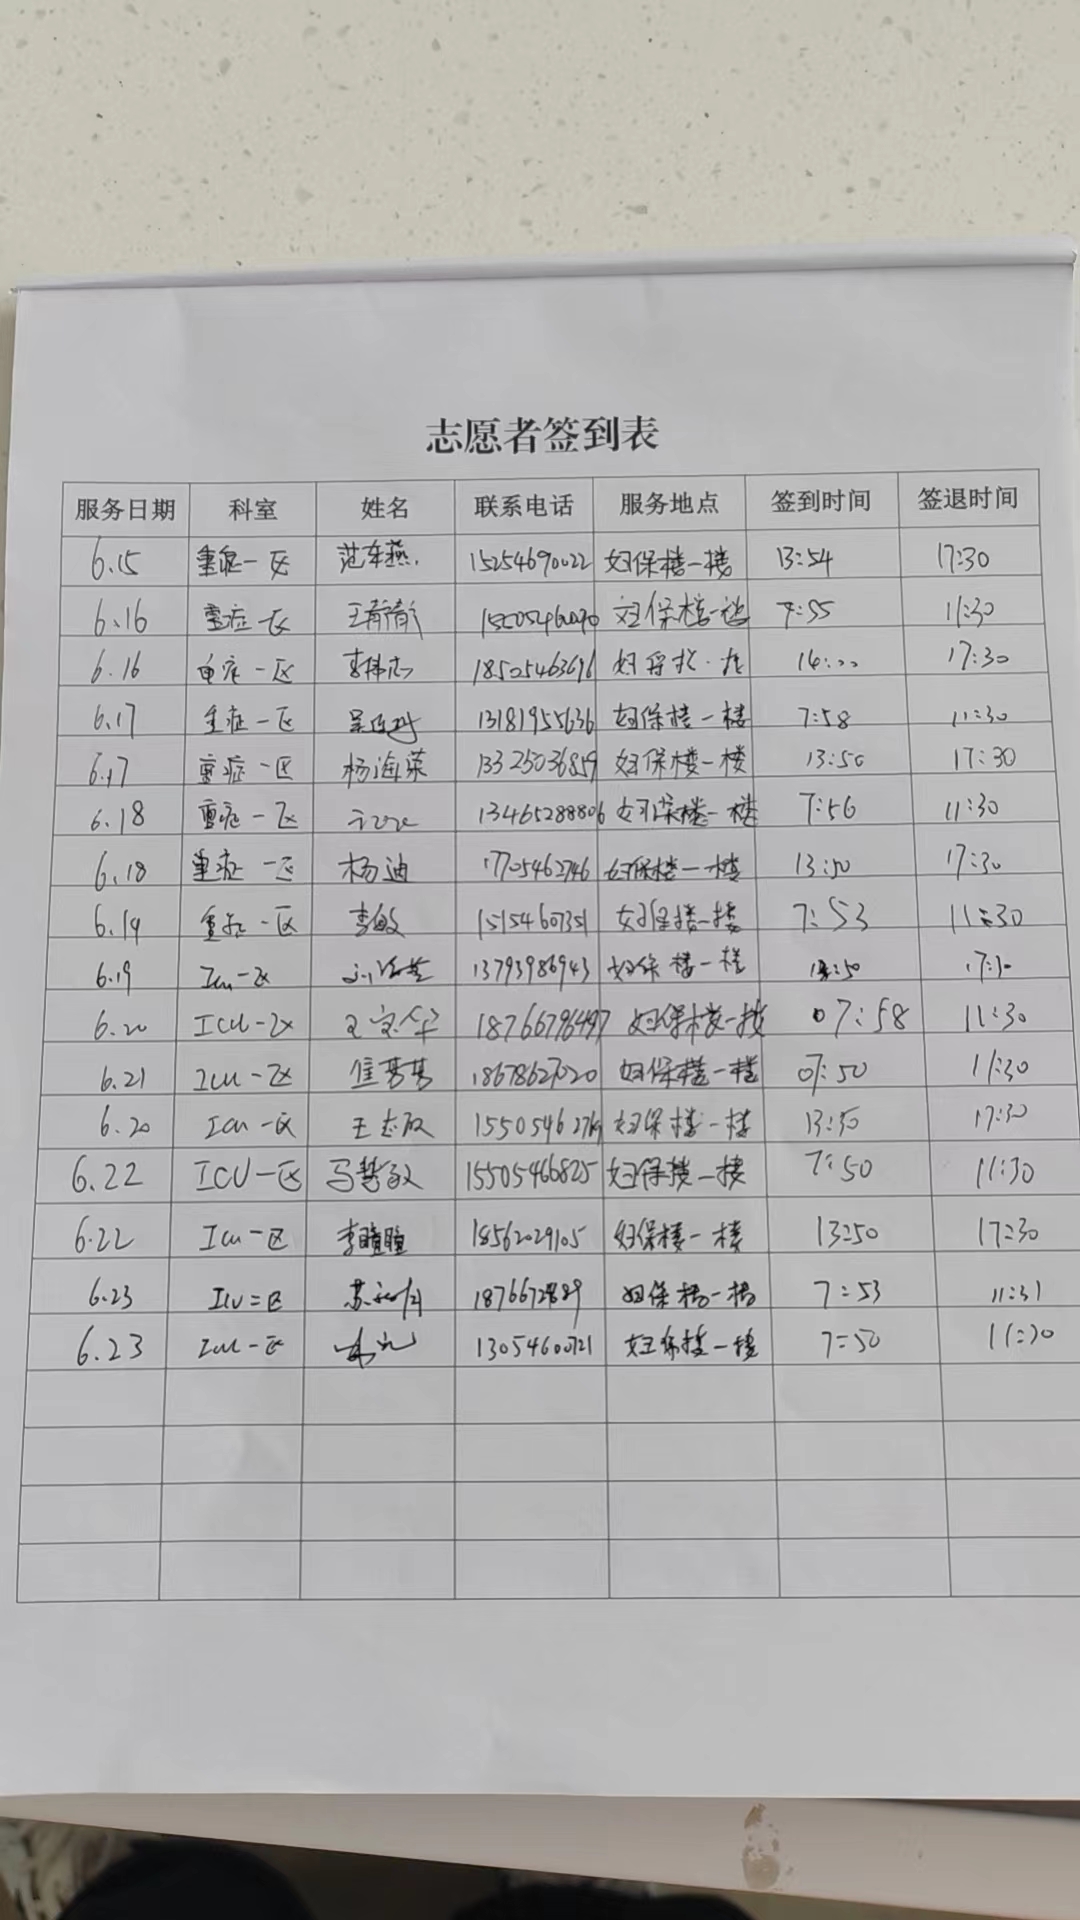 志愿者签到表
服务日期 科室 姓名 联系电话 服务地点 签到时间 签退时间
6.15 重症一区 范冬燕 15254690022 妇保楼一楼 13:54 17:30
6.16 重症一区 妇保楼一楼 7:55 11:30
6.16 重症一区 李伟志 18525463696 17:30
6.17 重症一区 13181955636 妇保楼一楼 7:58 11:30
6.17 重症一区 杨海荣 13325036859 妇保楼一楼 13:50 17:30
6.18 重症一区 13465288806 妇保楼一楼 7:56 11:30
6.18 重症一区 杨迪 17705462746 妇保楼一楼 13:50 17:30
6.19 重症一区 李敏 15154607351 妇保楼一楼 7:53 11:30
6.19 Icu一区 13793986943 妇保楼一楼
6.20 ICU一区 妇保楼一楼 07:58 11:30
6.21 Icu一区 18678627020 妇保楼一楼 07:50 11:30
6.20 Icu一区 王志欣 妇保楼一楼 13:50 17:30
6.22 ICU一区 马慧敏 15505460825 妇保楼一楼 7:50 11:30
6.22 Icu一区 李瞳瞳 18562029105 妇保楼一楼 13:50 17:30
6.23 妇保楼一楼 7:53 11:31
6.23 Icu一区 13054600721 妇保楼一楼 7:50 11:30